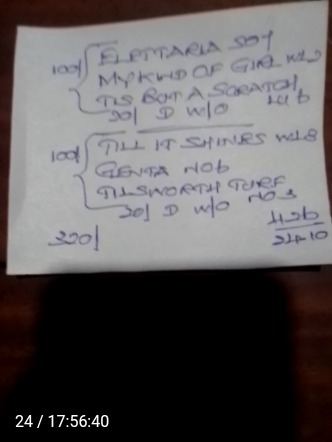 100/ ELETTARIA SOY
MY KIND OF GIRL W12
TIS BUT A SCRATCH
20/ D W/O 426
100/ TILL IT SHINES W18
GENTA NO6
TILSWORTH TURF NO3
20/ D W/O
320/ 426
24-10
24 / 17:56:40